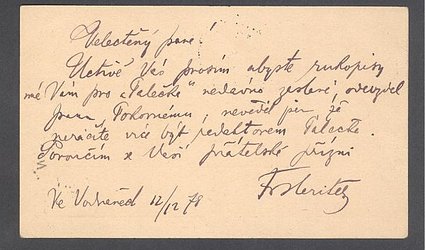 Velectěný pane!
Uctivě Vás prosím abyste rukopisy
mé Vám pro „Palečka" nedávno zaslané, odevzdal
panu Pokornému, nevěděl jsem že
neráčíte více být redaktorem Palečka.
Poroučím se Vaší přátelské přízni
Ve Vodněch 12/12 78